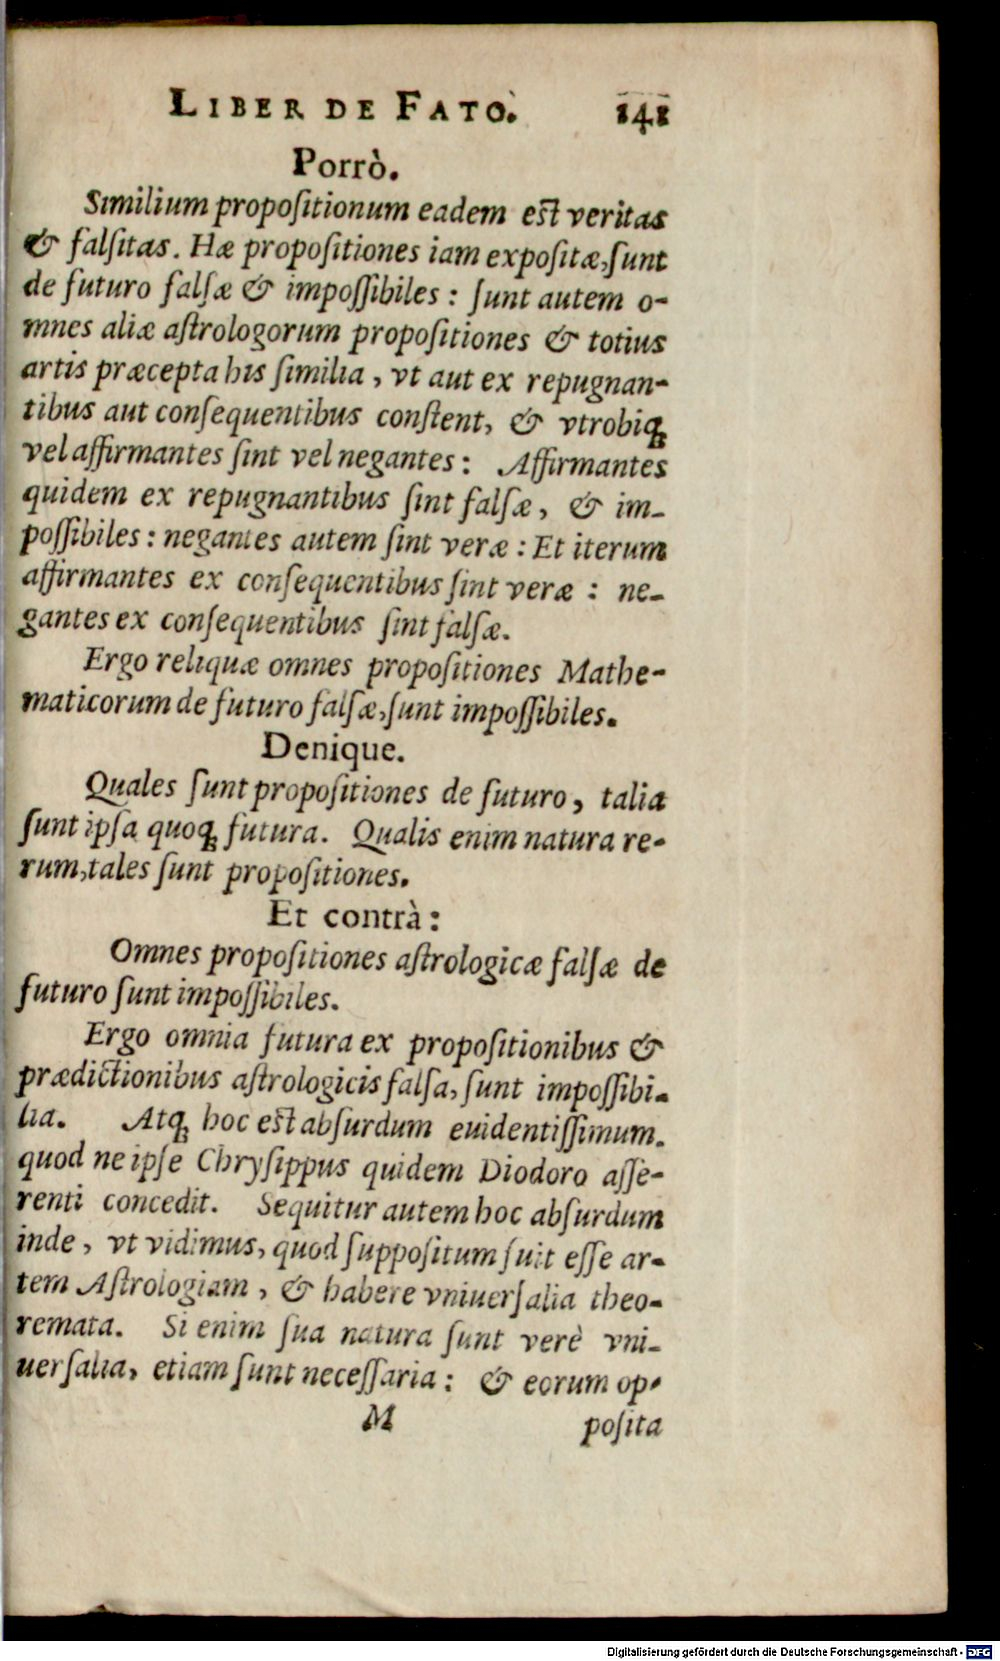 LIBER DE FATO. 141
Porrò.
Similium propoſitionum eadem eſt veritas
& falſitas. Hæ propoſitiones iam expoſitæ, ſunt
de futuro falſæ & impoſſibiles: ſunt autem o-
mnes aliæ aſtrologorum propoſitiones & totius
artis præcepta his ſimilia, vt aut ex repugnan-
tibus aut conſequentibus conſtent, & vtrobiq;
vel affirmantes ſint vel negantes: Affirmantes
quidem ex repugnantibus ſint falſæ, & im-
poſſibiles: negantes autem ſint veræ: Et iterum
affirmantes ex conſequentibus ſint veræ: ne-
gantes ex conſequentibus ſint falſæ.
Ergo reliquæ omnes propoſitiones Mathe-
maticorum de futuro falſæ, ſunt impoſſibiles.
Denique.
Quales ſunt propoſitiones de futuro, talia
ſunt ipſa quoq; futura. Qualis enim natura re-
rum, tales ſunt propoſitiones.
Et contrà:
Omnes propoſitiones aſtrologicæ falſæ de
futuro ſunt impoſſibiles.
Ergo omnia futura ex propoſitionibus &
prædictionibus aſtrologicis falſa, ſunt impoſſibi-
lia. Atq; hoc eſt abſurdum euidentiſſimum.
quod ne ipſe Chryſippus quidem Diodoro aſſe-
renti concedit. Sequitur autem hoc abſurdum
inde, vt vidimus, quod ſuppoſitum fuit eſſe ar-
tem Aſtrologiam, & habere vniuerſalia theo-
remata. Si enim ſua natura ſunt verè vni-
uerſalia, etiam ſunt neceſſaria: & eorum op-
M poſita
Digitalisierung gefördert durch die Deutsche Forschungsgemeinschaft - DFG